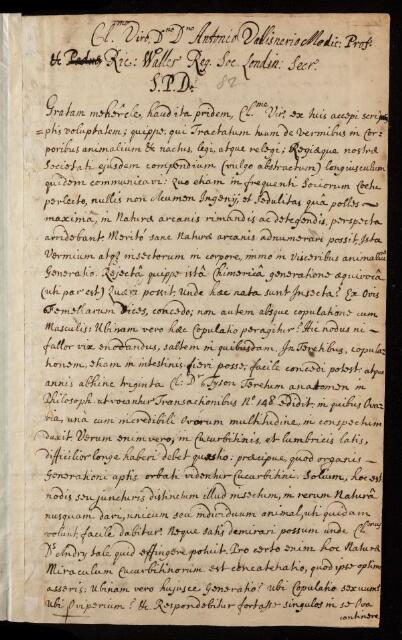 Cl:mo Viro, Dno Dno Antonio Vallisnerio Medic: Profr:
&c Padua, Ric: Waller Reg. Soc. Londin: Secr.
S.P.D:
82
Gratam mehercle, haud ita pridem, Cl:me Vir, ex tuis accepi scrip
=ptis voluptatem; quippe qui Tractatum tuum de Vermibus in Cor=
poribus animalium &c nactus, legi, atque relegi; Regiæque nostræ
Societati ejusdem compendium (vulgo abstractum) longiusculum
quidem communicavi: Quo etiam in frequenti Sociorum Cœtu
perlecto, nullis non Acumen Ingenij, et Sedulitas quâ polles
maxima, in Naturæ arcanis rimandis ac detegendis, perspecta
arridebant. Meritò sane Naturæ arcanis adnumerari possit, Ista
Vermium atqz insectorum in corpore, immo in Visceribus animalium
Generatio. Rejectâ quippe istâ Chimæricâ generatione æquivocâ
(uti par est) Quæri possit, Unde hæc nata sunt Insecta? Ex Ovis
Femellarum Dices, concedo; non autem absque copulatione cum
Masculis: Ubinam vero hæc Copulatio peragitur? Hic nodus ni
fallor vix enodandus, saltem in quibusdam. In Teretibus, copula
tionem, etiam in intestinis fieri posse, facile concedi potest, atque
annis abhinc triginta Cl: Dr Tyson Teretum anatomen in
Philosoph. ut vocantur Transactionibus No 148 edidit; in quibus Ova
ria, unà cum incredibili Ovorum multitudine, in conspectum
duxit. Verum enimvero, in Cucurbitinis, et lumbricis latis,
difficilior longe haberi debet quæstio: præcipue, quod organis
Generationi aptis orbati videntur Cucurbitini. Solium, hoc est
nodis seu juncturis distinctum illud insectum, in rerum Naturâ
nusquam dari, unicum seu individuum animal, uti quidam
volunt, facile dabitur. Neque satis demirari possum unde Cl:mus
Ds Andry tale quid effingere potuit. Pro certo enim hoc Naturæ
Miraculum Cucurbitinorum est concatenatio, quod ipse optime
asseris: Ubinam vero hujusce Generatio? Ubi Copulatio sexuum?
Ubi Oviperium? &c. Respondebitur fortasse singulos in se Ova
continere